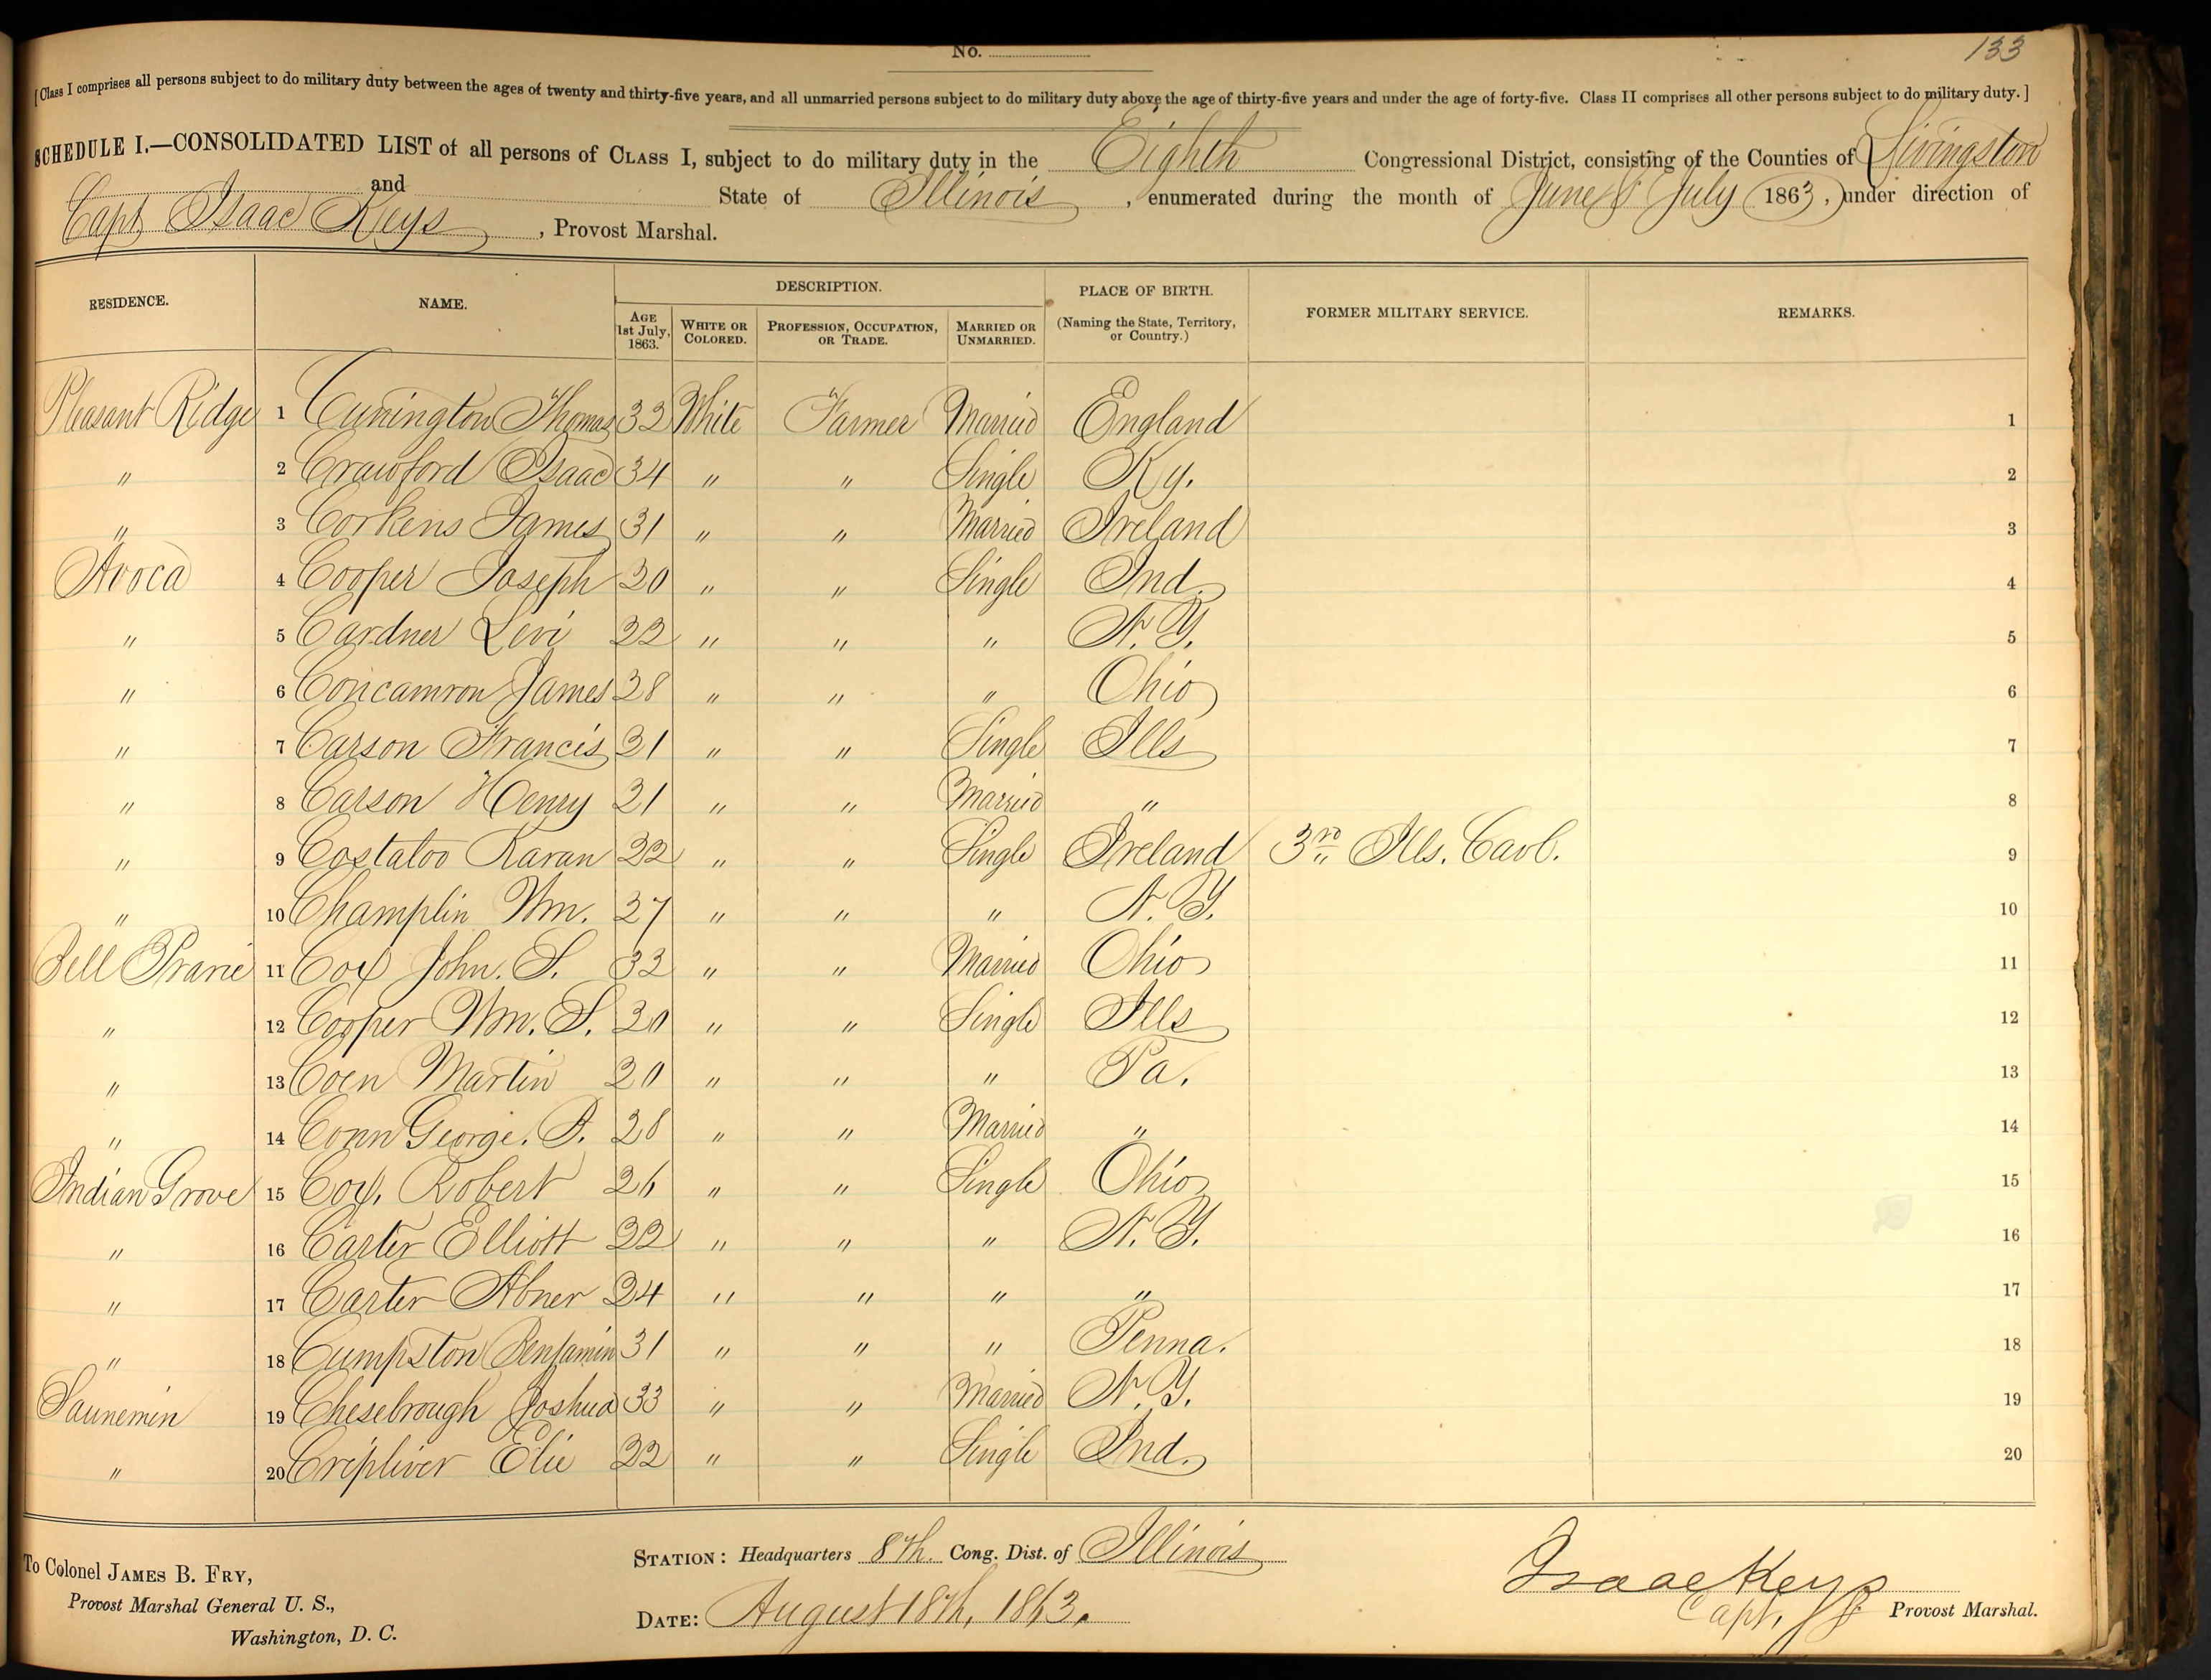 No.
133
[Class I comprises all persons subject to do military duty between the ages of twenty and thirty-five years, and all unmarried persons subject to do military duty above the age of thirty-five years and under the age of forty-five. Class II comprises all other persons subject to do military duty.]
SCHEDULE I.—CONSOLIDATED LIST of all persons of CLASS I, subject to do military duty in the Eighth Congressional District, consisting of the Counties of Livingston
and State of Illinois, enumerated during the month of June & July 1863, under direction of
Capt Isaac Keys, Provost Marshal.
RESIDENCE. NAME. DESCRIPTION. PLACE OF BIRTH. FORMER MILITARY SERVICE. REMARKS.
AGE 1st July, 1863. WHITE OR COLORED. PROFESSION, OCCUPATION, OR TRADE. MARRIED OR UNMARRIED. (Naming the State, Territory, or Country.)
Pleasant Ridge 1 Cunington Thomas 32 White Farmer Married England 1
" 2 Crawford Isaac 34 " " Single Ky. 2
" 3 Corkens James 31 " " Married Ireland 3
Avoca 4 Cooper Joseph 20 " " Single Ind. 4
" 5 Cardner Levi 22 " " " N.Y. 5
" 6 Concamron James 28 " " " Ohio 6
" 7 Carson Francis 21 " " Single Ills 7
" 8 Carson Henry 21 " " Married " 8
" 9 Costaloo Karan 22 " " Single Ireland 3rd Ills. Cavl. 9
" 10 Champlin Wm. 27 " " " N.Y. 10
Bell Prarie 11 Cox John. S. 32 " " Married Ohio 11
" 12 Cooper Wm. S. 20 " " Single Ills 12
" 13 Coen Martin 20 " " " Pa. 13
" 14 Conn George. A. 28 " " Married " 14
Indian Grove 15 Cox, Robert 26 " " Single Ohio 15
" 16 Carter Elliott 22 " " " N.Y. 16
" 17 Carter Abner 24 " " " " 17
" 18 Cumpston Benjamin 31 " " " Penna. 18
Saunemin 19 Chesebrough Joshua 33 " " Married N.Y. 19
" 20 Cripliver Elie 22 " " Single Ind. 20
To Colonel JAMES B. FRY,
Provost Marshal General U. S.,
Washington, D. C.
STATION: Headquarters 8th. Cong. Dist. of Illinois
DATE: August 18th, 1863.
Isaac Keys
Capt. & Provost Marshal.